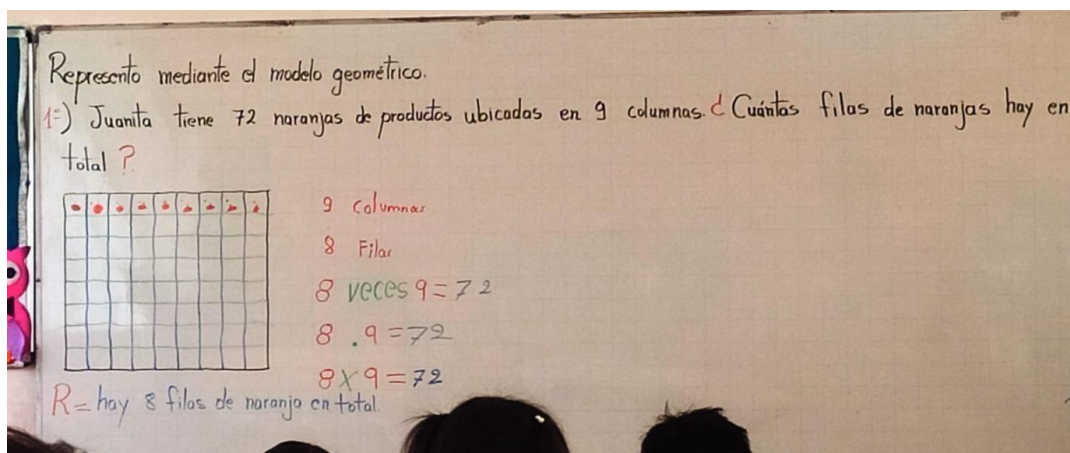 Represento mediante el modelo geométrico.
1º) Juanita tiene 72 naranjas de productos ubicadas en 9 columnas. ¿Cuántas filas de naranjas hay en
total?
9 columnas
8 Filas
8 veces 9=72
8 . 9 =72
8x9=72
R= hay 8 filas de naranja en total.